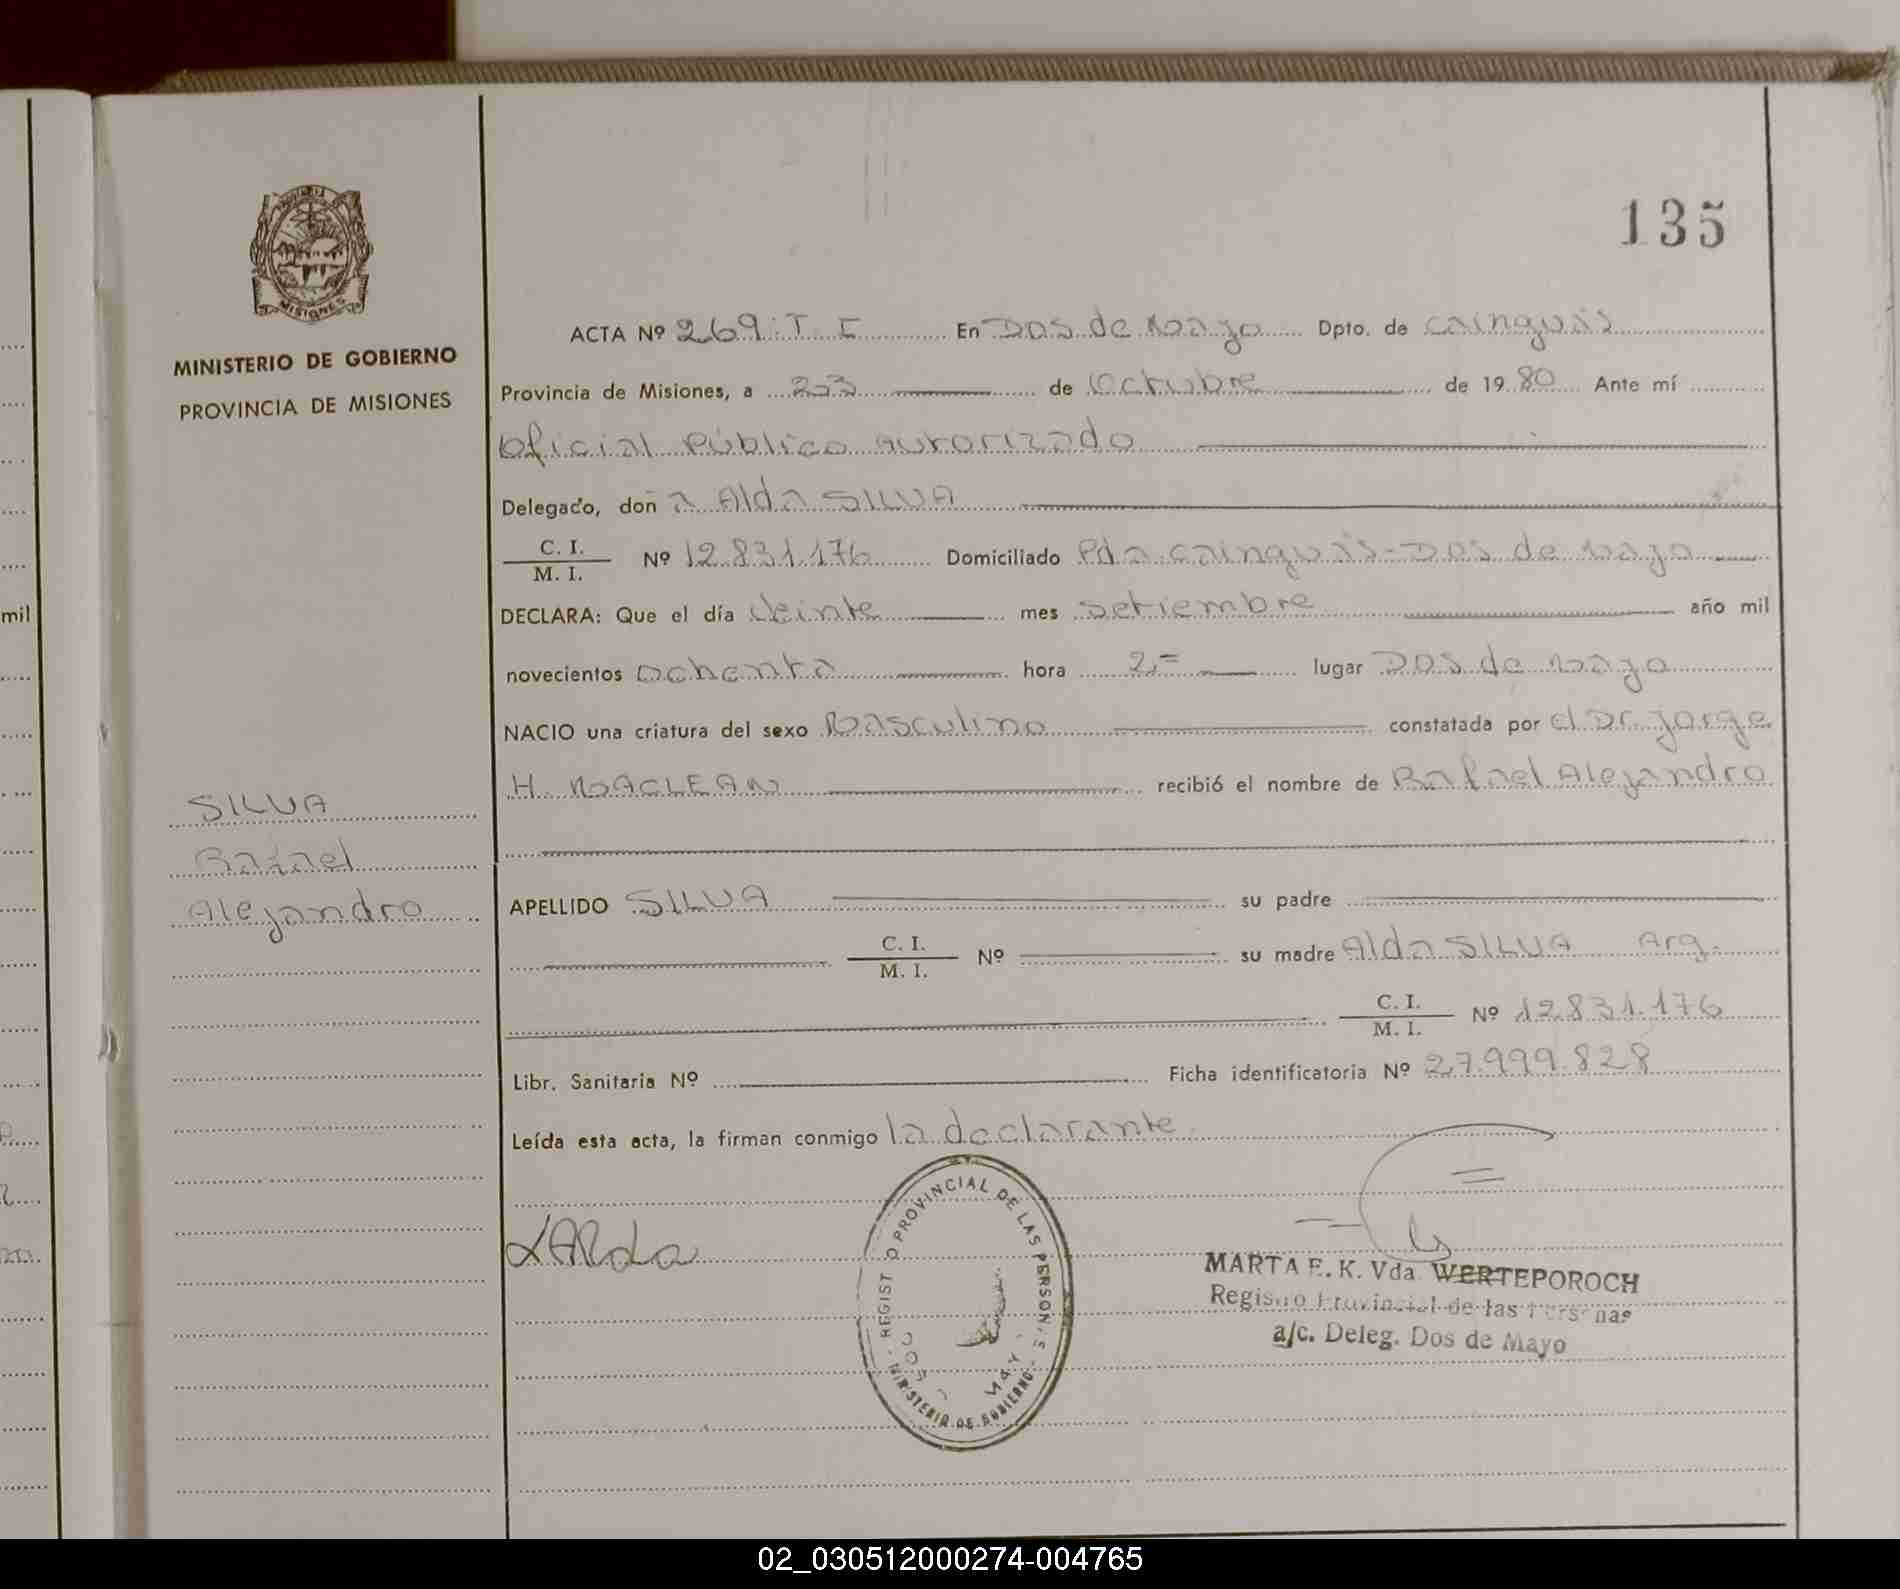 135
MISIONES
MINISTERIO DE GOBIERNO
PROVINCIA DE MISIONES
ACTA Nº 269. T. I En Dos de Mayo Dpto. de Cainguás
Provincia de Misiones, a 23 de Octubre de 19 80 Ante mí
Oficial Público Autorizado
Delegado, don a Alda SILVA
C. I.
M. I. Nº 12.831.176 Domiciliado Pda. Cainguás-Dos de Mayo
DECLARA: Que el día Veinte mes Setiembre año mil
novecientos Ochenta hora 2,= lugar Dos de Mayo
NACIO una criatura del sexo Masculino constatada por el Dr. Jorge
H. MACLEAN recibió el nombre de Rafael Alejandro
SILVA
Rafael
Alejandro
APELLIDO SILVA su padre
C. I.
M. I. Nº su madre Alda SILVA Arg.
C. I.
M. I. Nº 12.831.176
Libr. Sanitaria Nº Ficha identificatoria Nº 27.999.828
Leída esta acta, la firman conmigo la declarante.
Alda
REGISTRO PROVINCIAL DE LAS PERSONAS
MINISTERIO DE GOBIERNO
MARTA E. K. Vda. WERTEPOROCH
Registro Provincial de las Personas
a/c. Deleg. Dos de Mayo
mil
02_030512000274-004765